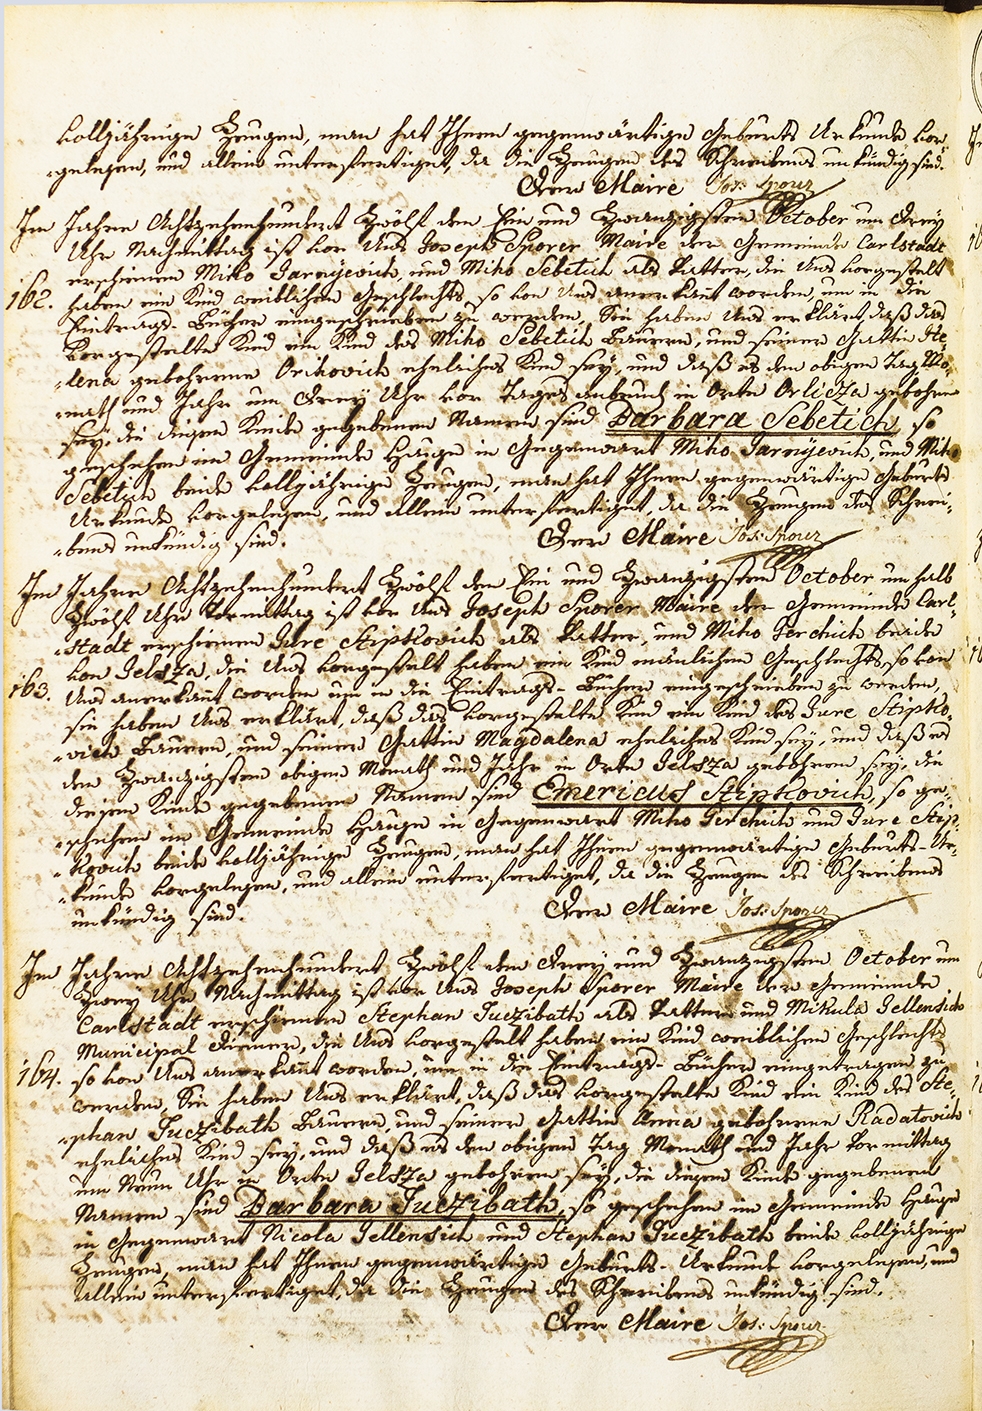 volljährige Zeugen, man hat Ihnen gegenwärtige Geburts Urkunde vor-
-gelesen, und allein unterfertiget, da die Zeugen des Schreibens unkündig sind.
Der Maire Jos: Sporer
Im Jahre Achtzehenhundert Zwölf den Ein und Zwanzigsten October um Drey
Uhr Nachmittag ist vor Uns Joseph Sporer Maire der Gemeinde Carlstadt
erschienen Miko Jarnyevich, und Miho Sebetich als Vatter, die Uns vorgestelt
162. haben ein Kind weiblichen Geschlechts so von Uns anerkañt worden, um in die
Eintrags-Bücher eingeschrieben zu werden, Sie haben Uns erklärt, daß das
Vorgestelte Kind ein Kind des Miho Sebetich Bauern, und seiner Gattin He-
-lena gebohrene Orihovich eheliches Kind sey, und daß es den obigen Tag Mo-
-nath und Jahr um Drey Uhr vor Tages Anbruch in Orte Orlicza gebohren
sey, die diesem Kinde gegebenen Namen sind Barbara Sebetich, so
geschehen im Gemeinde Hause in Gegenwart Miko Jarnyevich, und Miho
Sebetich beide volljährige Zeugen, man hat Ihnen gegenwärtige Geburts
Urkunde vorgelesen, und allein unterfertiget, da die Zeugen des Schrei-
-bens unkündig sind. Der Maire Jos: Sporer
Im Jahre Achtzehenhundert Zwölf den Ein und Zwanzigsten October um halb
Zwölf Uhr Vormittag ist vor Uns Joseph Sporer Maire der Gemeinde Carl-
-stadt erschienen Jure Stipkovich als Vatter, und Miho Perchich beide
von Jelsza, die Uns vorgestelt haben ein Kind mänlichen Geschlechts, so von
163. Uns anerkañt worden um in die Eintrags-Bücher eingeschrieben zu werden,
sie haben Uns erklärt, daß das vorgestelte Kind ein Kind des Jure Stipko-
-vich Bauern, und seiner Gattin Magdalena eheliches Kind sey, und daß es
den Zwanzigsten obigen Monath und Jahr in Orte Jelsza gebohren sey, die
diesem Kinde gegebenen Namen sind Emericus Stipkovich, so ge-
-schehen im Gemeinde Hause in Gegenwart Miho Perchich und Jure Stip-
-kovich beide volljährige Zeugen, man hat Ihnen gegenwärtige Geburts-Ur-
-kunde vorgelesen, und allein unterfertiget, da die Zeugen des Schreibens
unkündig sind. Der Maire Jos: Sporer
Im Jahre Achtzehenhundert Zwölf den Drey und Zwanzigsten October um
Zwey Uhr Nachmittag ist vor Uns Joseph Sporer Maire der Gemeinde
Carlstadt erschienen Stephan Juczibath als Vatter und Mikula Jellensich
Municipal Diener, die Uns vorgestelt haben ein Kind weiblichen Geschlechts
164. so von Uns anerkañt worden, um in die Eintrags-Bücher eingetragen zu
werden, Sie haben Uns erklärt, daß das vorgestelte Kind ein Kind des Ste-
-phan Juczibath Bauern, und seiner Gattin Anna gebohrene Radatovich
eheliches Kind sey, und daß es den obigen Tag Monath und Jahr Vormittag
um Neun Uhr in Orte Jelsza gebohren sey, die diesem Kinde gegebenen
Namen sind Barbara Juczibath, so geschehen im Gemeinde Hause
in Gegenwart Nicola Jellensich und Stephan Juczibath beide volljährige
Zeugen, man hat Ihnen gegenwärtige Geburts-Urkunde vorgelesen, und
allein unterfertiget, da die Zeugen des Schreibens unkündig sind.
Der Maire Jos: Sporer